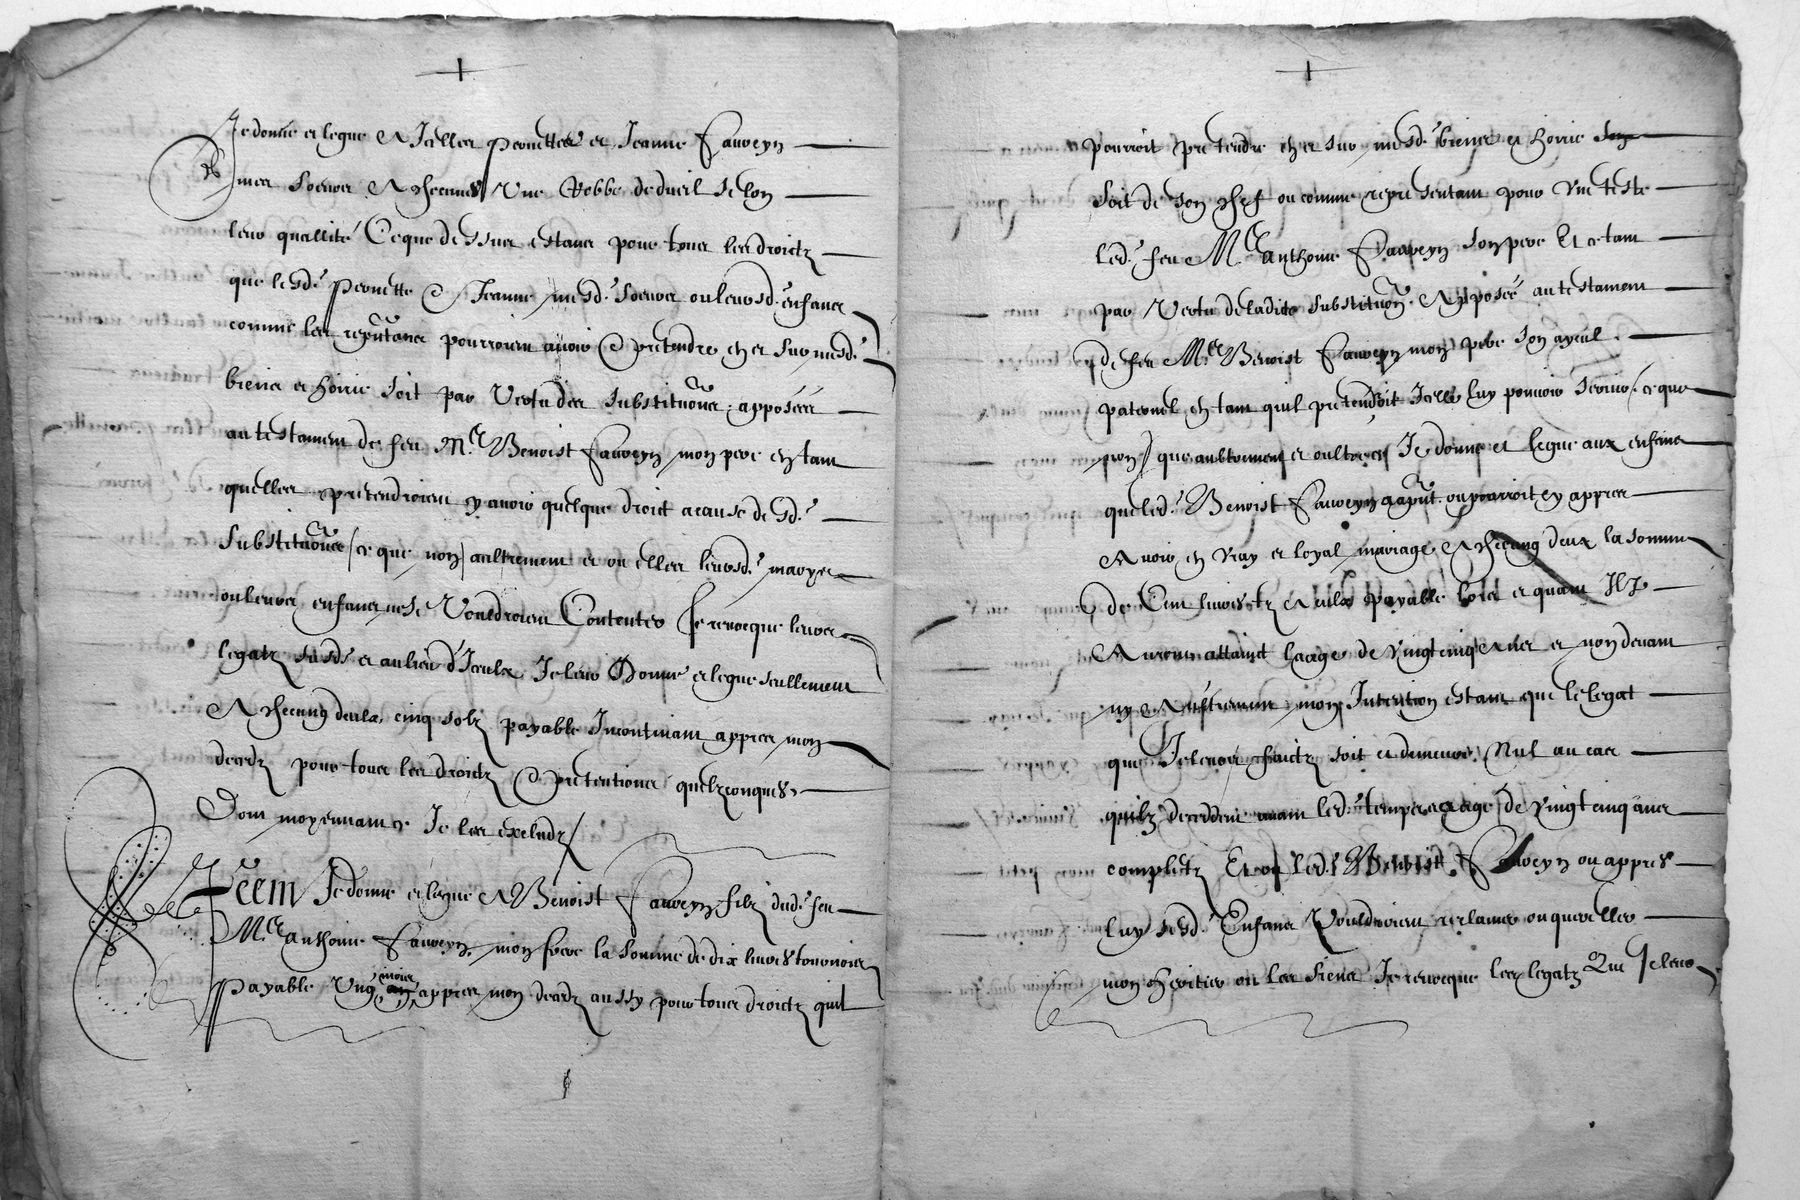 Je donne et legue A Icelles pernettes et Jeanne Fauveyn
mes soeurs A checunes Une Robbe de dueil selon
leur quallité Ce que dessus estans pour tous les droictz
que lesd. pernette & Jeanne mesd. soeurs ou leursd. enfans
comme les repñtans pourroient avoir & pretendre en et sur mesd.
biens et hoirie soit par vertu des substituõns apposées
au testament de feu Me. Benoist Fauveyn mon pere en tant
quelles pretendroient y avoir quelque droict a cause desd.
substituõns / ce que non / aultrement et ou elles leursd. marys
ou leurs enfans ne se Vouldroient Contenter Je revocque leurs
legatz susds et au lieu d'Iceulx Je leur Donne et legue seullement
A checung deulx cinq solz payable Incontinant appres mon
decedz pour tous les droictz & pretentions quelzconques
Dont moyennant ce Je les excludz /
Item Je donne et legue A Benoist Fauveyn filz dud. feu
Me. anthoine Fauveyn mon frere la somme de dix livres tournois
Payable Ung mois appres mon decedz aussy pour tous droictz quil
pourroit pretendre en et sur mesd. biens et hoirie
soit de son chef ou comme representant pour Une teste
led. feu Me. anthoine Fauveyn son pere Et ce tant
par Vertu de ladite substituõn Apposée au testament
de feu Me. Benoist Fauveyn mon pere son ayeul
paternel en tant quil pretendroit Icelle luy pouvoir servir / ce que
non / que aultrement et oultre ce Je donne et legue aux enfans
que led. Benoist Fauveyn a apñt ou pourroit cy appres
Avoir en vray et loyal mariage A checung deux la somme
de Cent livres tz A eulx payable lors et quant Ilz
Auront attainct leage de vingt cinq Ans et non devant
ny Aultrement mon Intention estant que le legat
que Je leurs faictz soit et demeure Nul au cas
quilz decedent avant led. temps et eage de vingt cinq ans
completz Et ou led. Benoist Fauveyn ou appres
luy sesd. Enfans Vouldroient reclamer ou quereller
mon heritier ou les siens Je revocque les legatz Que Je leur